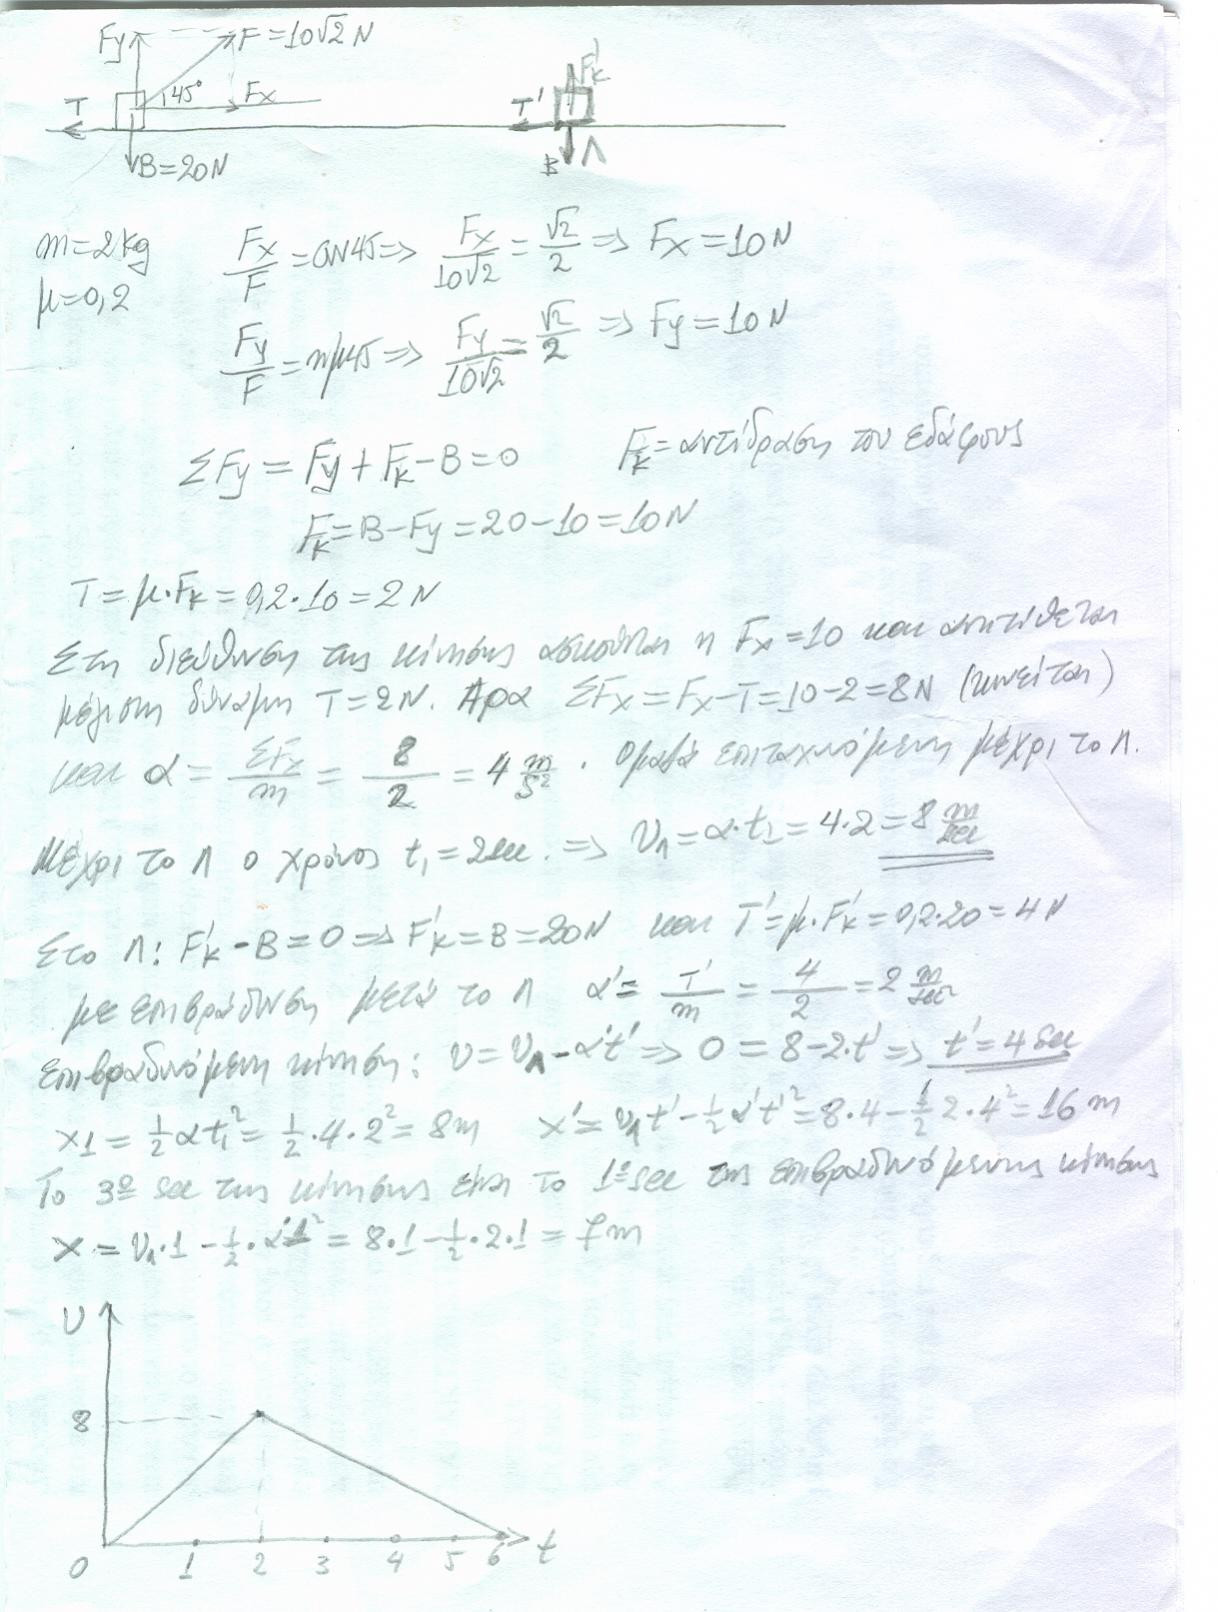 Fy F=10√2 N
45° Fx
T
B=20N
F'κ
T'
B Λ
m=2kg
μ=0,2
Fx/F = συν45 => Fx/10√2 = √2/2 => Fx=10N
Fy/F = ημ45 => Fy/10√2 = √2/2 => Fy=10N
ΣFy = Fy + Fκ - B = 0 Fκ = αντίδραση του εδάφους
Fκ = B - Fy = 20-10 = 10N
T = μ·Fκ = 0,2·10 = 2N
Στη διεύθυνση της κίνησης ασκείται η Fx=10 και αντιτίθεται
μέγιστη δύναμη T=2N. Άρα ΣFx = Fx-T = 10-2 = 8N (κινείται)
και α = ΣFx/m = 8/2 = 4 m/s². Ομαλά επιταχυνόμενη μέχρι το Λ.
Μέχρι το Λ ο χρόνος t₁=2sec. => υΛ = α·t₁ = 4·2 = 8 m/sec
Στο Λ: F'κ - B = 0 => F'κ = B = 20N και T' = μ·F'κ = 0,2·20 = 4N
με επιβράδυνση μετά το Λ α' = T'/m = 4/2 = 2 m/sec²
επιβραδυνόμενη κίνηση: υ = υΛ - α't' => 0 = 8-2·t' => t'=4sec
x1 = ½αt₁² = ½·4·2² = 8m x' = υΛt' - ½α't'² = 8·4 - ½2·4² = 16m
Το 3º sec της κίνησης είναι το 1º sec της επιβραδυνόμενης κίνησης
x = υΛ·1 - ½·α'·1² = 8·1 - ½·2·1 = 7m
υ
8
0 1 2 3 4 5 6 t